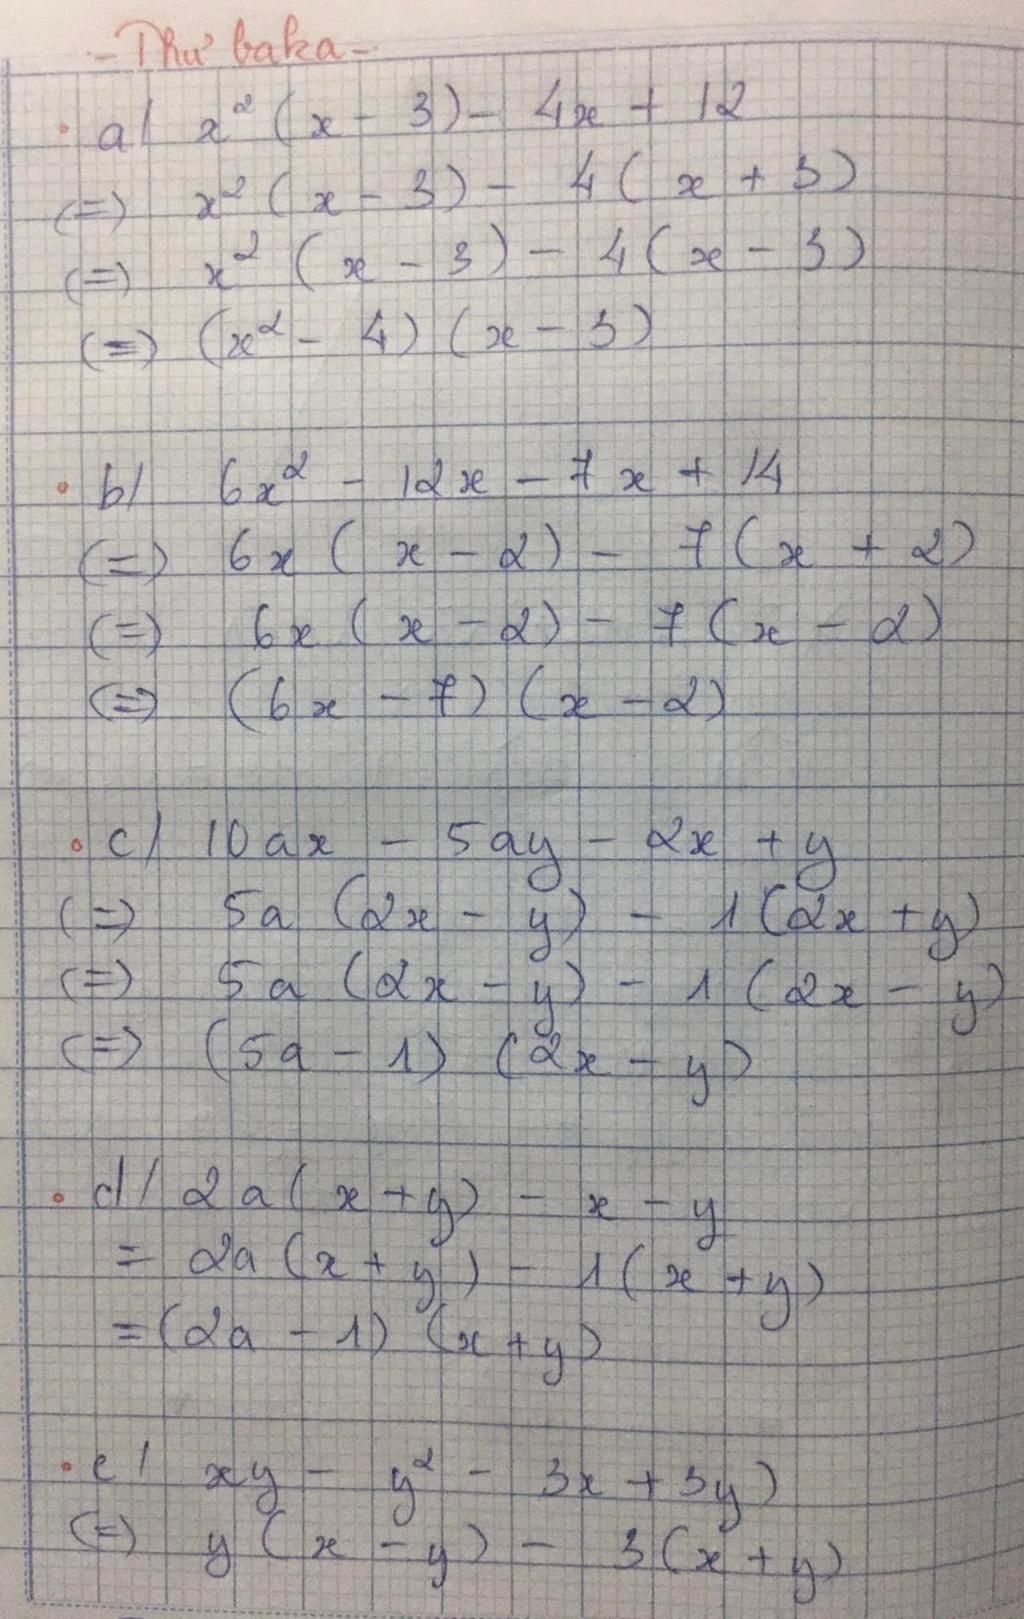 - Thư baka -
a/ x² (x - 3) - 4x + 12
(=) x² (x - 3) - 4 (x + 3)
(=) x² (x - 3) - 4 (x - 3)
(=) (x² - 4) (x - 3)
b/ 6x² - 12x - 7x + 14
(=) 6x (x - 2) - 7 (x + 2)
(=) 6x (x - 2) - 7 (x - 2)
(=) (6x - 7) (x - 2)
c/ 10ax - 5ay - 2x + y
(=) 5a (2x - y) - 1 (2x + y)
(=) 5a (2x - y) - 1 (2x - y)
(=) (5a - 1) (2x - y)
d/ 2a (x + y) - x - y
= 2a (x + y) - 1 (x + y)
= (2a - 1) (x + y)
e/ xy - y² - 3x + 3y)
(=) y (x - y) - 3 (x + y)